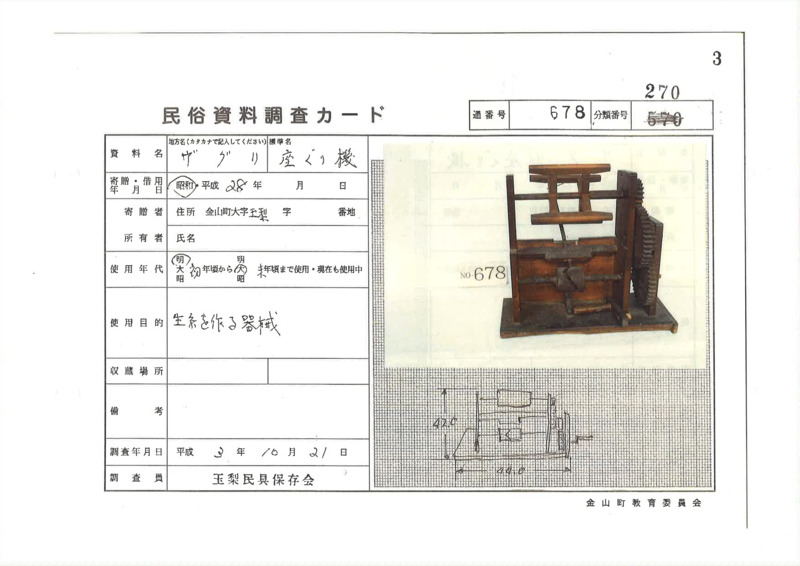 3
270
民俗資料調査カード
通番号 678 分類番号 570
資料名 地方名(カタカナで記入してください) 標準名
ザグリ 座ぐり機
寄贈・借用年月日 昭和・平成 28年 月 日
寄贈者 住所 金山町大字玉梨 字 番地
所有者 氏名
使用年代 明大昭 初年頃から 明大昭 末年頃まで使用・現在も使用中
使用目的 生糸を作る器械
収蔵場所
備考
調査年月日 平成 3年 10月 21日
調査員 玉梨民具保存会
NO-678
42.0
44.0
金山町教育委員会